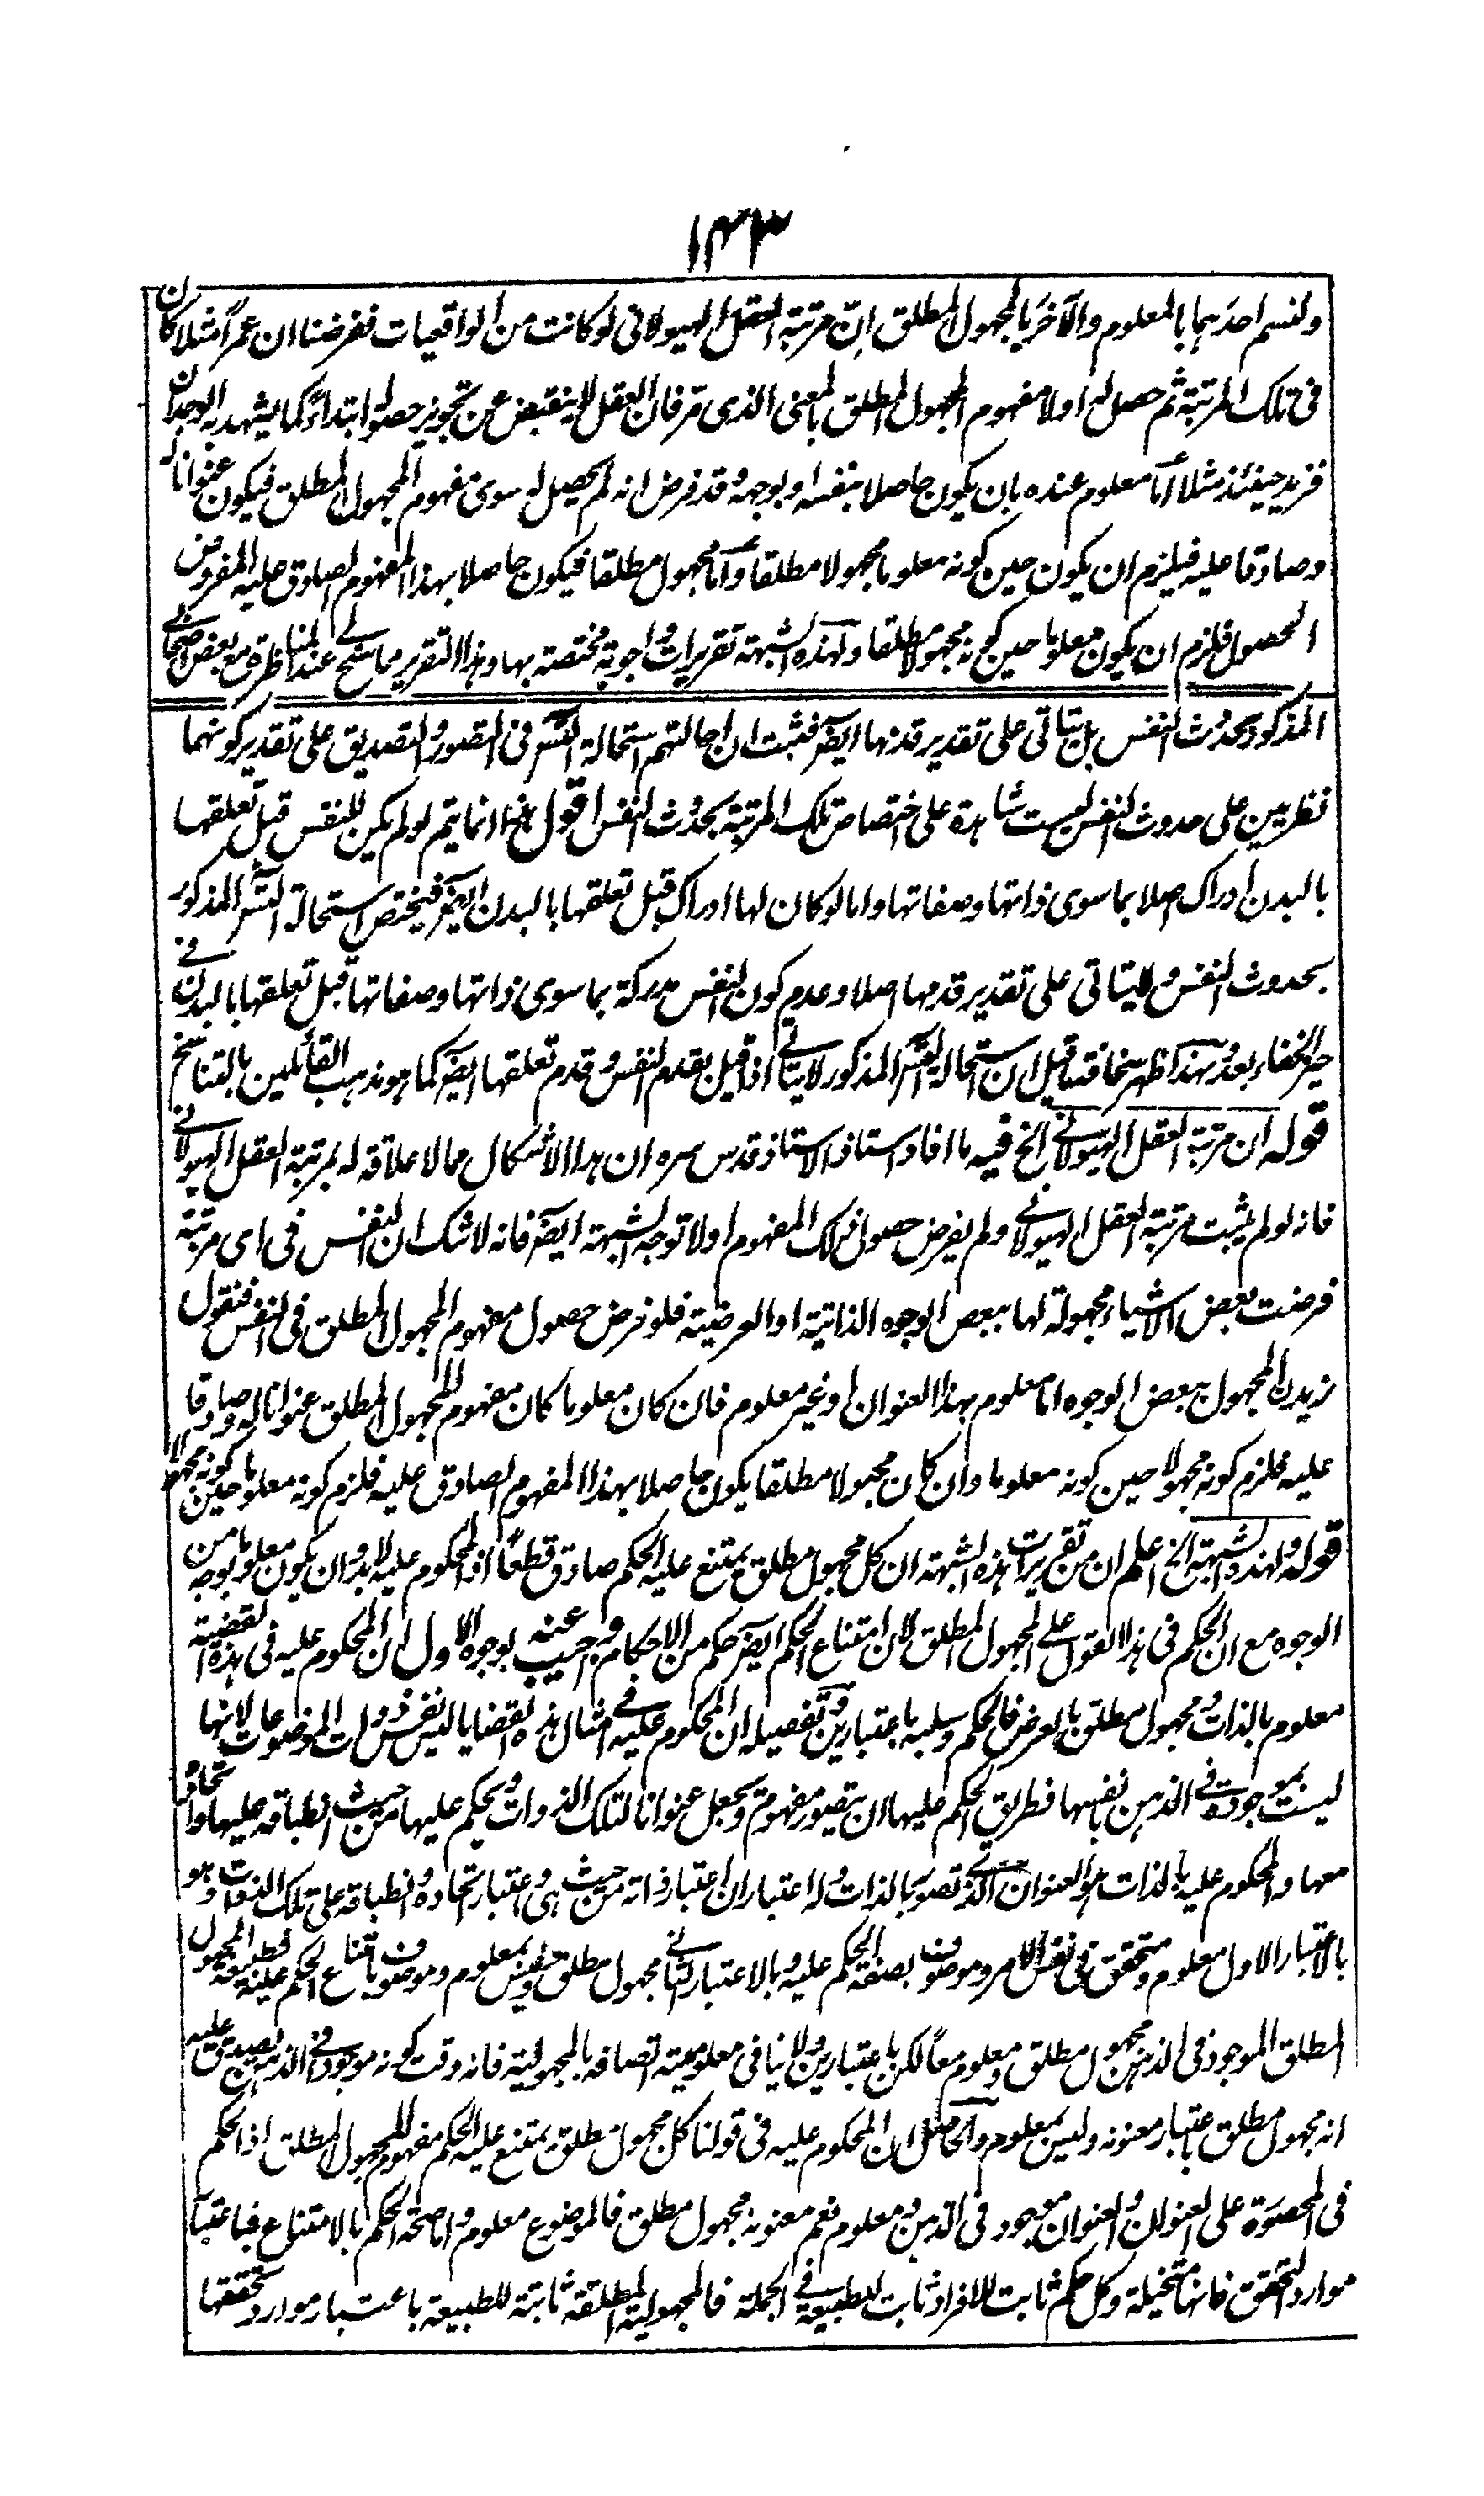 ۱۴۳
ولنسم احدہما بالمعلوم والآخر بالمجہول المطلق ان مرتبة العقل الہیولانی لو کانت من الواقعیات ففرضنا ان عمراً مثلا کان
فی تلک المرتبة ثم حصل لہ اولا مفہوم المجہول المطلق بالمعنی الذی مر فان العقل لا ینقبض عن تجویز حصولہ ابتداءً کما یشہد بہ الوجدان
فزید حینئذ مثلا اما معلوم عندہ بان یکون حاصلا بنفسہ او بوجہہ وقد فرض انہ لم یحصل لہ سوی مفہوم المجہول المطلق فیکون عنوانا لہ
وصادقا علیہ فیلزم ان یکون حین کونہ معلوما مجہولا مطلقا واما مجہول مطلقا فیکون حاصلا بہذا المفہوم الصادق علیہ المفروض
الحصول فلزم ان یکون معلوما حین کونہ مجہولا مطلقا ولہذہ الشبہة تقریرات واجوبة مختصة بہا وہذا التقریر مما سنح لی عند المناظرة مع بعض اصحابی
المذکور بحدوث النفس بل یتاتی علی تقدیر قدمہا ایضا فثبت ان احالتہم استحالة التسلسل فی التصور والتصدیق علی تقدیر کونہما
نظریین علی حدوث النفس لیست شاہدة علی اختصاص تلک المرتبة بحدوث النفس اقول ہذا انما یتم لو لم یکن للنفس قبل تعلقہا
بالبدن ادراک اصلا بما سوی ذاتہا وصفاتہا واما لو کان لہا ادراک قبل تعلقہا بالبدن ایضا فیختص استحالة التسلسل المذکور
بحدوث النفس ولا یتاتی علی تقدیر قدمہا اصلا وعدم کون النفس مدرکة بما سوی ذاتہا وصفاتہا قبل تعلقہا بالبدن فی
حیز الخفاء بعد وبہذا ظہر سخافة ما قیل ان استحالة التسلسل المذکور لا یتاتی اذا قیل بقدم النفس وقدم تعلقہا ایضا کما ہو مذہب القائلین بالتناسخ
قولہ ان مرتبة العقل الہیولانی الخ فیہ ما افاد استاذ الاستاذ قدس سرہ ان ہذا الاشکال مما لا علاقة لہ بمرتبة العقل الہیولانی
فانہ لو لم یثبت مرتبة العقل الہیولانی ولم یفرض حصول ذلک المفہوم اولا توجہ الشبہة ایضا فانہ لا شک ان للنفس فی ای مرتبة
فرضت بعض الاشیاء مجہولة لہا ببعض الوجوہ الذاتیة او العرضیة فلو فرض حصول مفہوم المجہول المطلق فی النفس فنقول
زید المجہول ببعض الوجوہ اما معلوم بہذا العنوان او غیر معلوم فان کان معلوما کان مفہوم المجہول المطلق عنوانا لہ وصادقا
علیہ فلزم کونہ مجہولا حین کونہ معلوما وان کان مجہولا مطلقا یکون حاصلا بہذا المفہوم الصادق علیہ فلزم کونہ معلوما حین کونہ مجہولا
قولہ ولہذہ الشبہة الخ اعلم ان من تقریرات ہذہ الشبہة ان کل مجہول مطلق یمتنع علیہ الحکم صادق قطعاً اذ المحکوم علیہ لا بد وان یکون معلوما بوجہ من
الوجوہ مع ان الحکم فی ہذا القول علی المجہول المطلق لان امتناع الحکم ایضا حکم من الاحکام واجیب عنہ بوجوہ الاول ان المحکوم علیہ فی ہذہ القضیة
معلوم بالذات ومجہول مطلق بالعرض فالحکم وسلبہ باعتبارین وتفصیلہ ان المحکوم علیہ فی امثال ہذہ القضایا لیس نفس ذوات الموضوعات لانہا
لیست بموجودة فی الذہن بانفسہا فطریق الحکم علیہا ان یتصور مفہوم ویجعل عنوانا لتلک الذوات ویحکم علیہا من حیث انطباقہ علیہا واتحادہ
معہا والمحکوم علیہ بالذات ہو العنوان الذی تصور بالذات ولہ اعتباران اعتبار ذاتہ من حیث ہی واعتبار اتحادہ وانطباقہ علی تلک الذوات وہو
بالاعتبار الاول معلوم ومتحقق فی نفس الامر وموصوف بصفة الحکم علیہ وبالاعتبار الثانی مجہول مطلق ولیس بمعلوم وموصوف بامتناع الحکم علیہ فطبیعة المجہول
المطلق الموجود فی الذہن مجہول مطلق ومعلوم معاً لکن باعتبارین ولا ینافی معلومیتہ اتصافہ بالمجہولیة فانہ وقت کونہ موجودا فی الذہن یصدق علیہ
انہ مجہول مطلق باعتبار معنونہ ولیس بمعلوم والحاصل ان المحکوم علیہ فی قولنا کل مجہول مطلق یمتنع علیہ الحکم مفہوم المجہول المطلق اذ الحکم
فی المحصورة علی العنوان والعنوان موجود فی الذہن ومعلوم نعم معنونہ مجہول مطلق فالموضوع معلوم واما صحة الحکم بالامتناع فباعتبار
موارد التحقق فانہا مستحیلة وکل حکم ثابت للافراد ثابت للطبیعة فی الجملة فالمجہولیة المطلقة ثابتة للطبیعة باعتبار موارد تحققہا